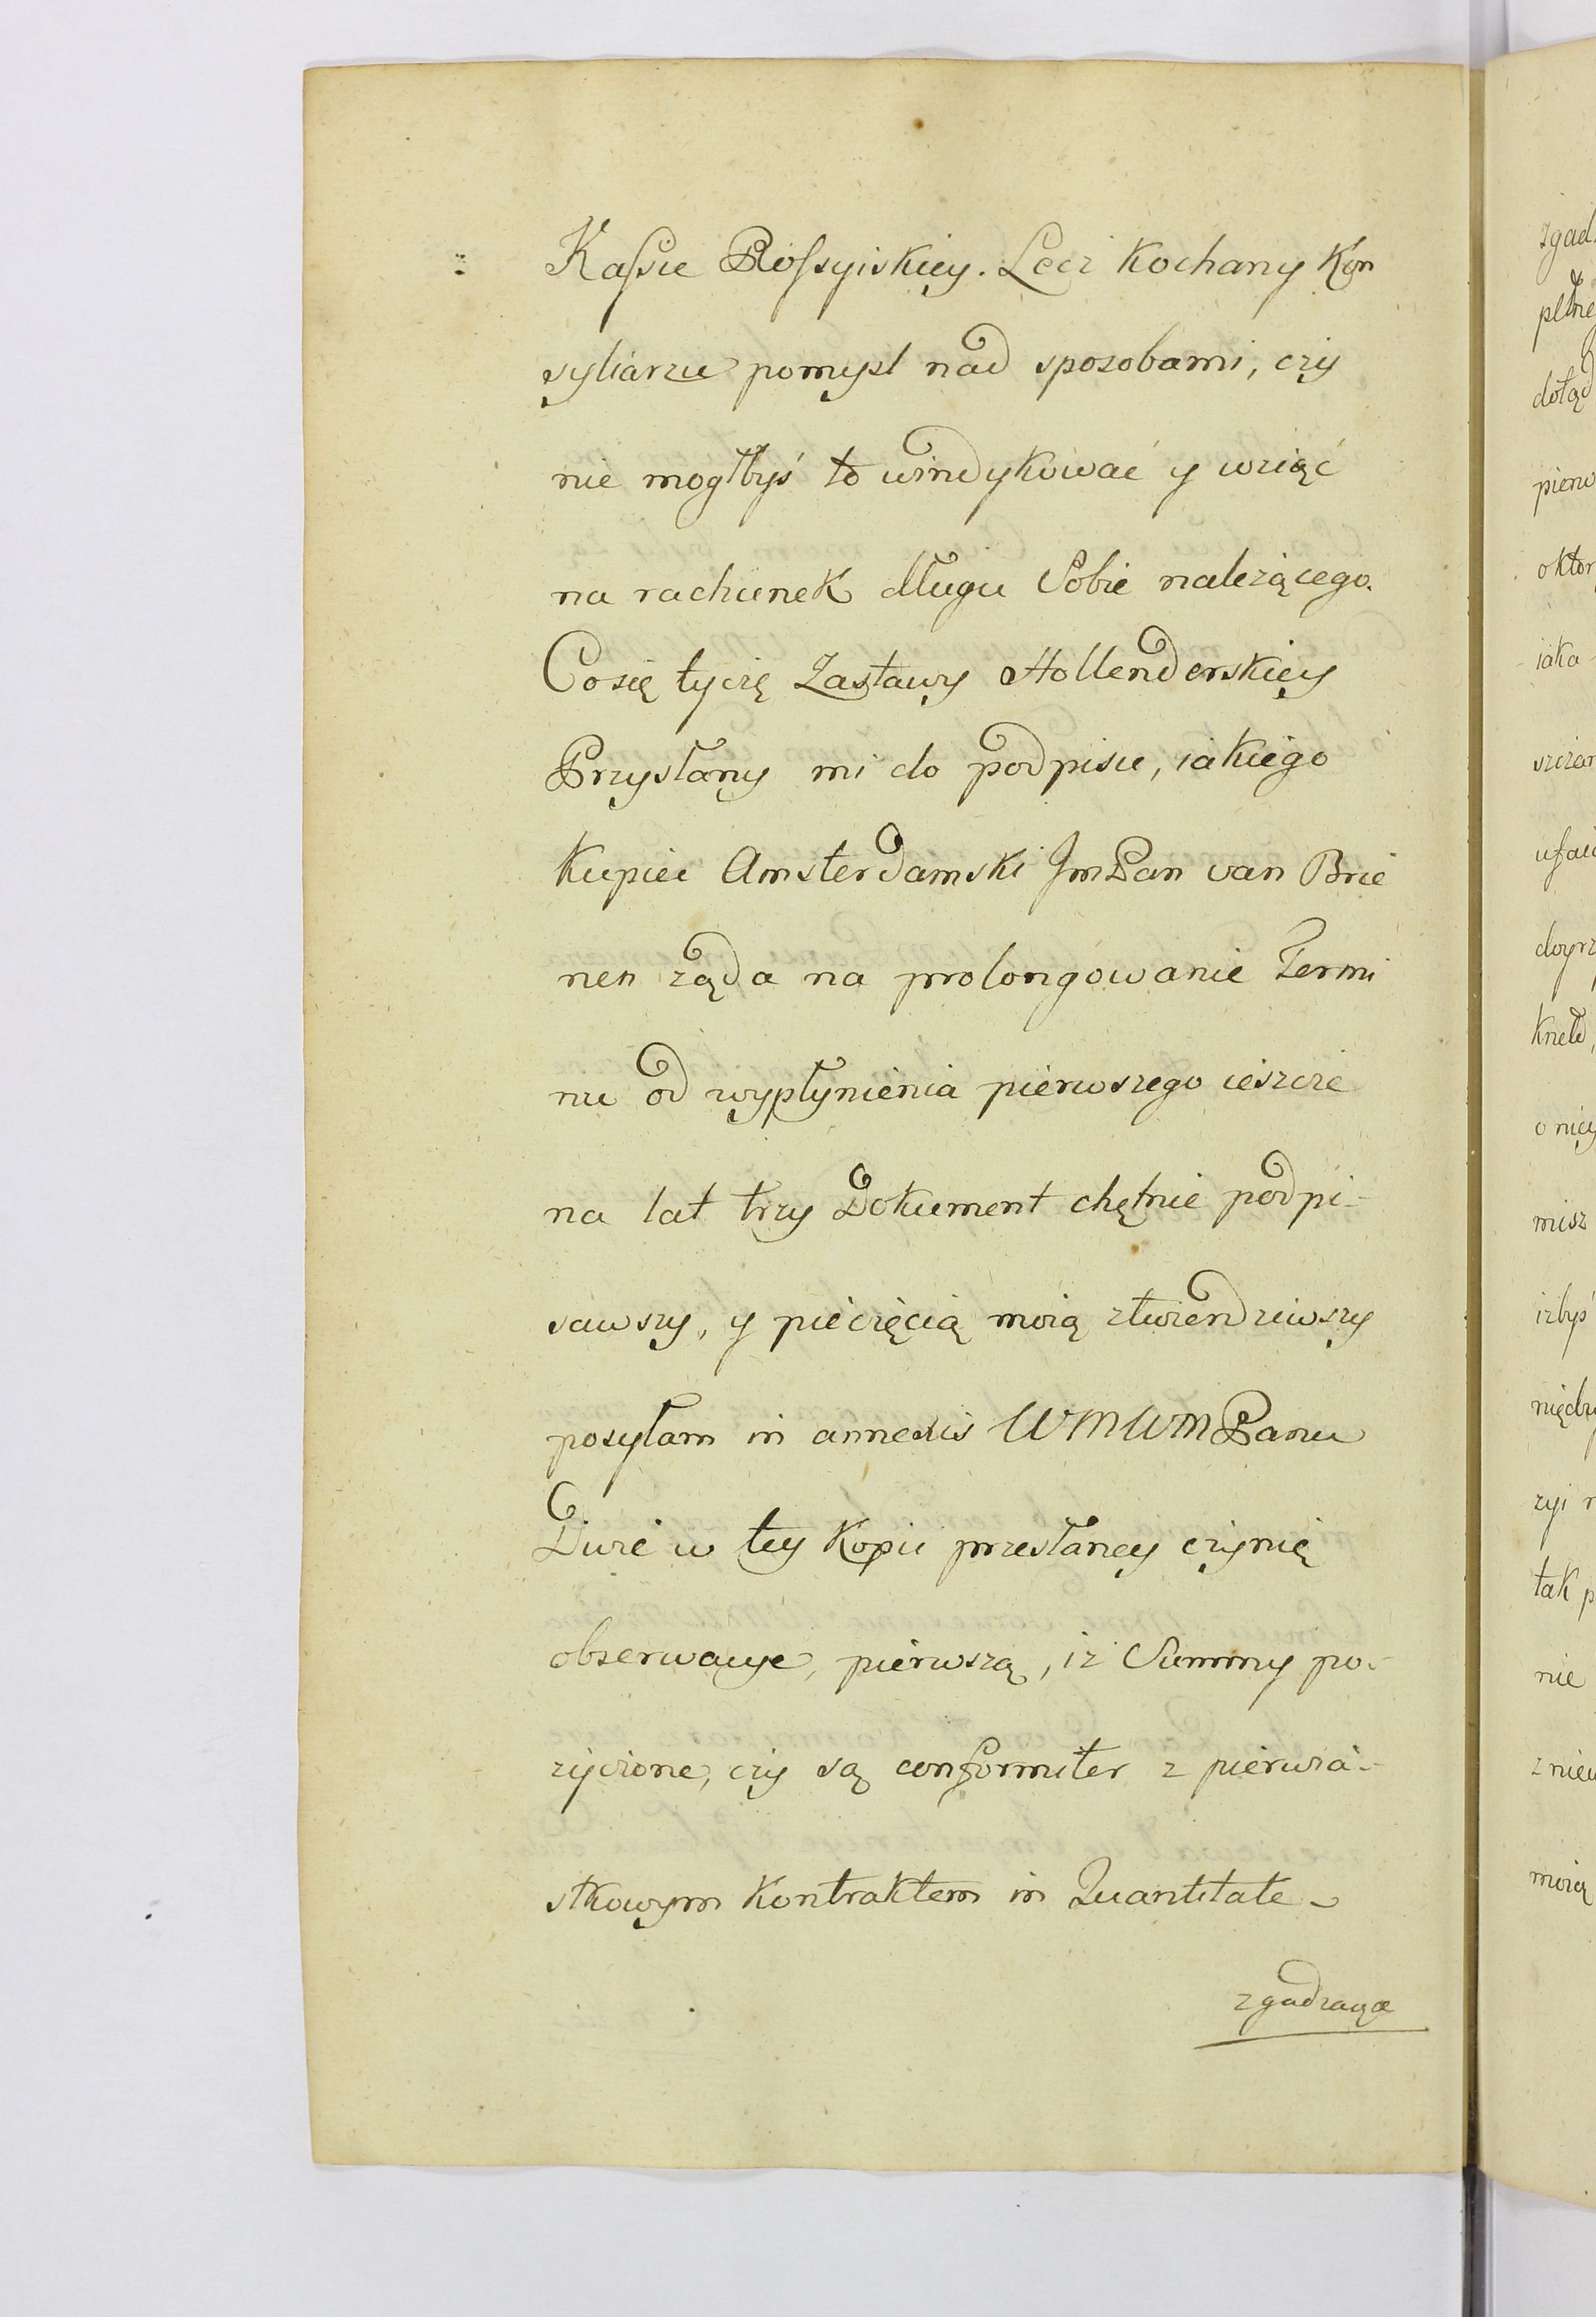 Kassie Rossyiskiey. Lecz Kochany Kon
syliarzu pomysl nad sposobami, czy
nie mogłbyś to windykować y wziąć
na rachunek długu Sobie należącego.
Co się tyczę Zastawy Hollenderskiey
Przysłany mi do podpisu, iakiego
Kupiec Amsterdamski JmPan van Brie
nen żąda na prolongowanie Termi
nu od wypłynienia pierwszego ieszcze
na lat trzy Dokument chętnie podpi-
sawszy, y pieczęcią moią ztwierdziwszy
posyłam in annexis WMWMPanu
Dwie w tey Kopii przesłaney czynię
obserwacye, pierwszą, iż Summy po-
życzone, czy są conformiter z pierwia-
stkowym Kontraktem in Quantitate
zgadzaiące
zgad
dotąd
pierw
oktor
iaka
szczan
ufaią
doprz
o niey
misz
izbyś
zyi
tak p
nie
z niew
moią